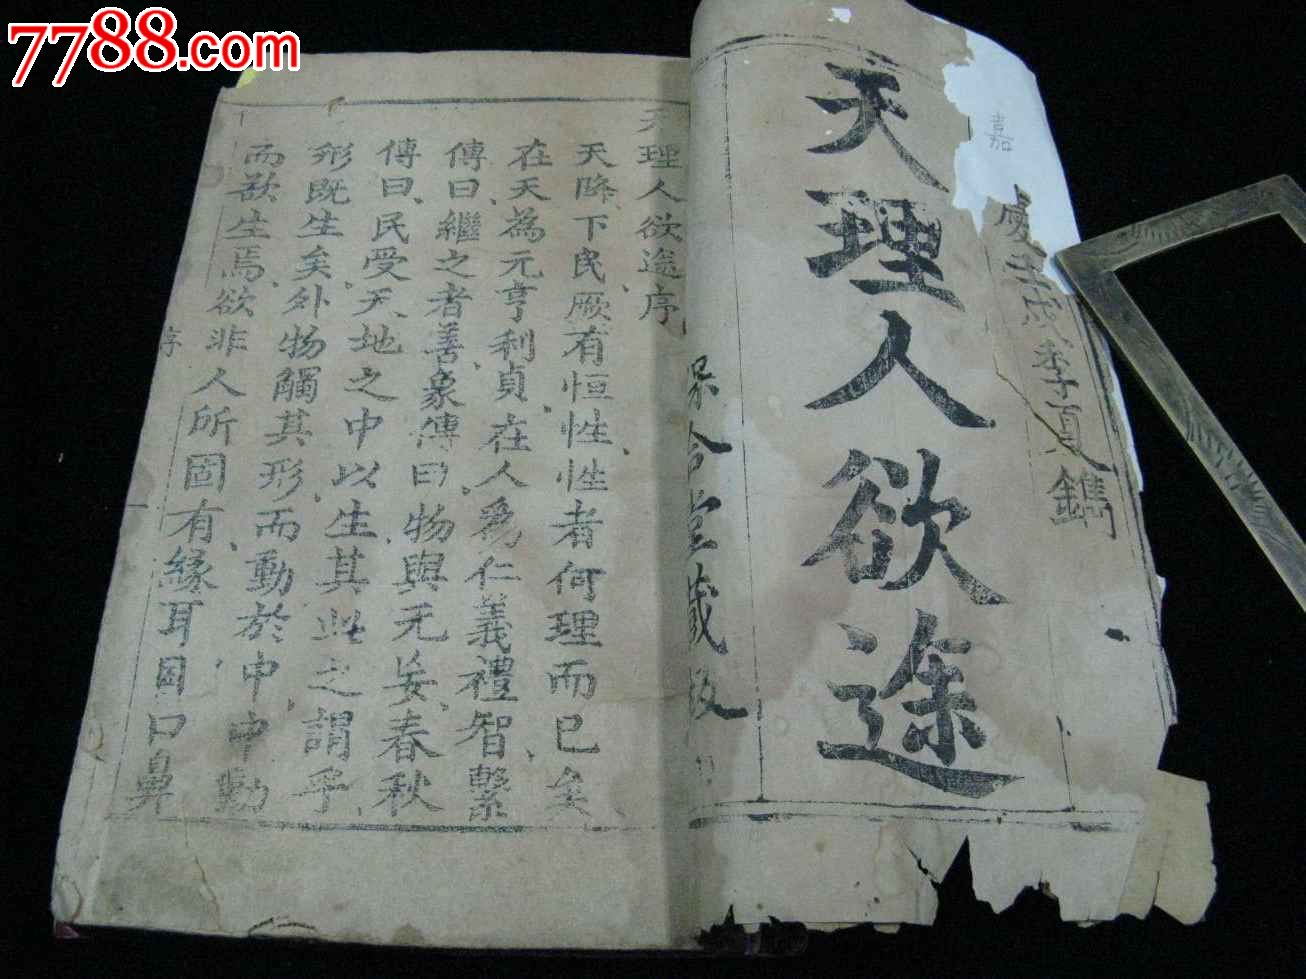 7788.com
嘉慶壬戌季夏鐫
天理人欲途
保合堂藏板
天理人欲途序
天降下民厥有恒性性者何理而已矣
在天為元亨利貞在人為仁義禮智繫
傳曰繼之者善彖傳曰物與无妄春秋
傳曰民受天地之中以生其此之謂乎
形既生矣外物觸其形而動於中中動
而欲生焉欲非人所固有緣耳目口鼻
序
一